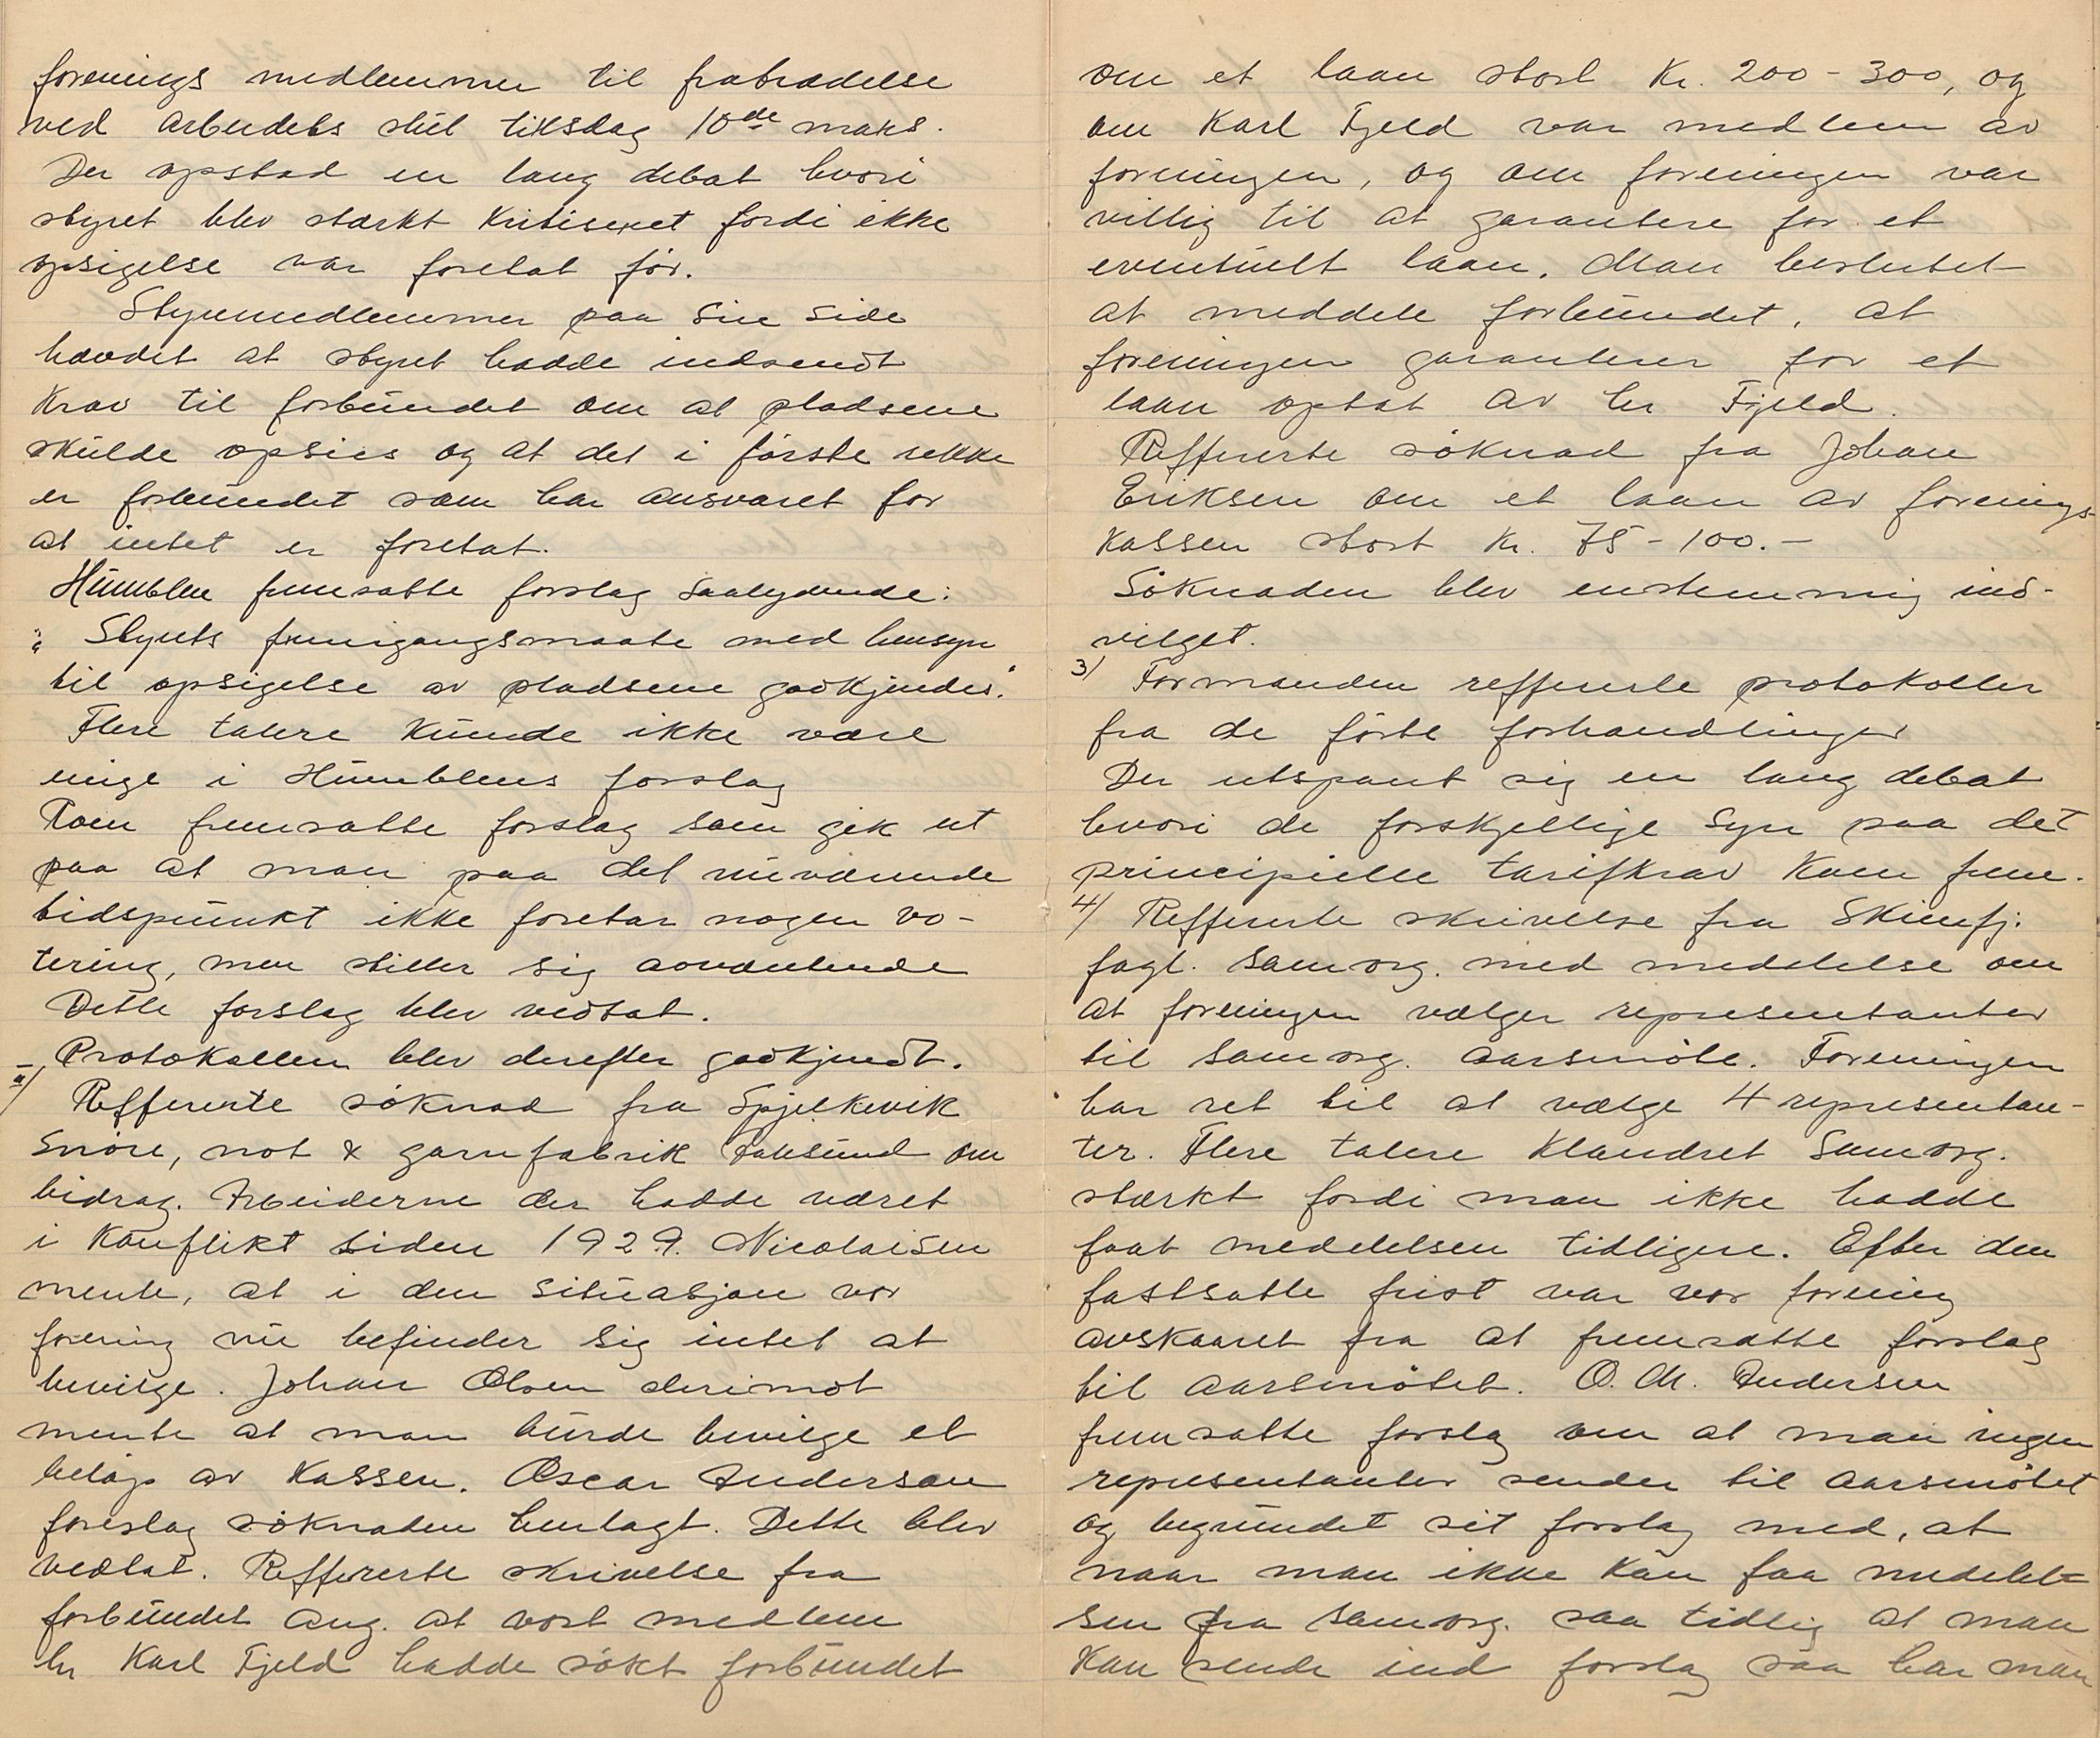 forenings medlemmer til fratrædelse
ved arbeidets slut tirsdag 10de mars.
Der opstod en lang debat hvori
styret blev stærkt kritiseret fordi ikke
opsigelse var foretat før.
Styremedlemmer paa sin side
hævdet at styret hadde indsendt
krav til forbundet om at pladsene
skulde opsies og at det i første rekke
er forbundet som har ansvaret for
at intet er foretat.
Humblen fremsatte forslag saalydende:
"Styrets fremgangsmaate med hensyn
til opsigelse av pladsene godkjendes."
Flere talere kunde ikke være
enige i Humblens forslag
Roen fremsatte forslag som gik ut
paa at man paa det nuværende
tidspunkt ikke foretar nogen vo-
tering, men stiller sig avventende
Dette forslag blev vedtat.
Protokollen blev derefter godkjendt.
II/ Reffererte søknad fra Spjelkevik
Snøre, not & garnfabrik Aalesund om
bidrag. Arbeiderne der hadde været
i konflikt siden 1929. Nicolaisen
mente, at i den situasjon vor
forening nu befinder sig intet at
bevilge. Johan Olsen derimot
mente at man burde bevilge et
beløp av kassen. Oscar Anderson
foreslag søknaden henlagt. Dette blev
vedtat. Reffererte skrivelse fra
forbundet ang. at vort medlem
hr Karl Fjeld hadde søkt forbundet
om et laan stort Kr. 200 - 300, og
om Karl Fjeld var medlem av
foreningen, og om foreningen var
villig til at garantere for et
eventuelt laan. Man besluttet
at meddele forbundet, at
foreningen garanterer for et
laan optat av hr Fjeld.
Reffererte søknad fra Johan
Eriksen om et laan av forenings-
kassen stort Kr. 75 - 100.-
Søknaden blev enstemmig ind-
vilget.
3/ Formanden reffererte protokoller
fra de førte forhandlinger
Der utspant sig en lang debat
hvori de forskjellige syn paa det
principielle tarifkrav kom frem.
4/ Reffererte skrivelse fra Skiensfj.
fagl. samorg. med meddelelse om
at foreningen vælger representanter
til samorg. aarsmøte. Foreningen
har ret til at vælge 4 representan-
ter. Flere talere klandret Samorg.
stærkt fordi man ikke hadde
faat meddelelsen tidligere. Efter den
fastsatte frist var vor forening
avskaaret fra at fremsatte forslag
til aarsmøtet. O. M. Andersen
fremsatte forslag om at man ingen
representanter sender til aarsmøtet
og begrundet sit forslag med, at
naar man ikke kan faa meddelel-
sen fra samorg. saa tidlig at man
kan sende ind forslag saa har man